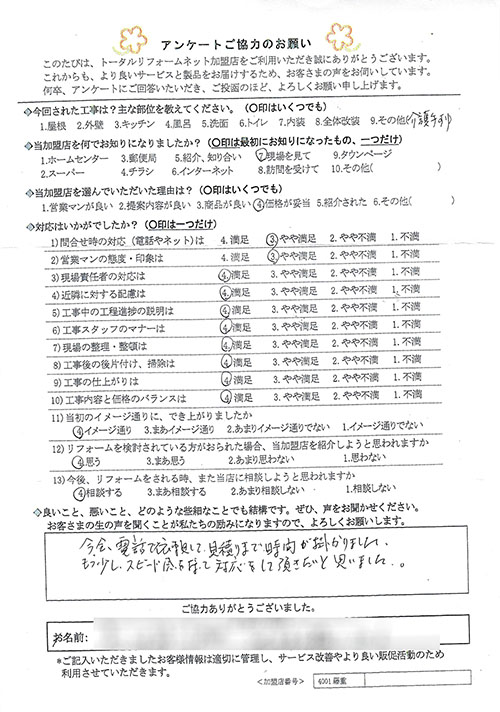 アンケートご協力のお願い
このたびは、トータルリフォームネット加盟店をご利用いただき誠にありがとうございます。
これからも、より良いサービスと製品をお届けするため、お客さまの声をお伺いしています。
何卒、アンケートにご回答いただき、ご投函のほど、よろしくお願い申し上げます。
今回された工事は？主な部位を教えてください。（○印はいくつでも）
1.屋根 2.外壁 3.キッチン 4.風呂 5.洗面 6.トイレ 7.内装 8.全体改装 9.その他(介護手すり)
当加盟店を何でお知りになりましたか？（○印は最初にお知りになったもの、一つだけ）
1.ホームセンター 3.郵便局 5.紹介、知り合い ⑦現場を見て 9.タウンページ
2.スーパー 4.チラシ 6.インターネット 8.訪問を受けて 10.その他( )
当加盟店を選んでいただいた理由は？（○印はいくつでも）
1.営業マンが良い 2.提案内容が良い 3.商品が良い ④価格が妥当 5.紹介された 6.その他( )
対応はいかがでしたか？（○印は一つだけ）
1)問合せ時の対応（電話やネット）は 4.満足 ③やや満足 2.やや不満 1.不満
2)営業マンの態度・印象は 4.満足 ③やや満足 2.やや不満 1.不満
3)現場責任者の対応は ④満足 3.やや満足 2.やや不満 1.不満
4)近隣に対する配慮は ④満足 3.やや満足 2.やや不満 1.不満
5)工事中の工程進捗の説明は ④満足 3.やや満足 2.やや不満 1.不満
6)工事スタッフのマナーは ④満足 3.やや満足 2.やや不満 1.不満
7)現場の整理・整頓は ④満足 3.やや満足 2.やや不満 1.不満
8)工事後の後片付け、掃除は ④満足 3.やや満足 2.やや不満 1.不満
9)工事の仕上がりは ④満足 3.やや満足 2.やや不満 1.不満
10)工事内容と価格のバランスは ④満足 3.やや満足 2.やや不満 1.不満
11)当初のイメージ通りに、でき上がりましたか
④イメージ通り 3.まあイメージ通り 2.あまりイメージ通りでない 1.イメージ通りでない
12)リフォームを検討されている方がおられた場合、当加盟店を紹介しようと思われますか
④思う 3.まあ思う 2.あまり思わない 1.思わない
13)今後、リフォームをされる時、また当店に相談しようと思われますか
④相談する 3.まあ相談する 2.あまり相談しない 1.相談しない
良いこと、悪いこと、どのような些細なことでも結構です。ぜひ、声をお聞かせください。
お客さまの生の声を聞くことが私たちの励みになりますので、よろしくお願いします。
今回、電話で依頼して、見積りまで時間が掛かりました。
もう少し、スピード感を持って対応をして頂きたいと思いました。
ご協力ありがとうございました。
お名前:
*ご記入いただきましたお客様情報は適切に管理し、サービス改善やより良い販促活動のため
利用させていただきます。
<加盟店番号> 4001 藤重